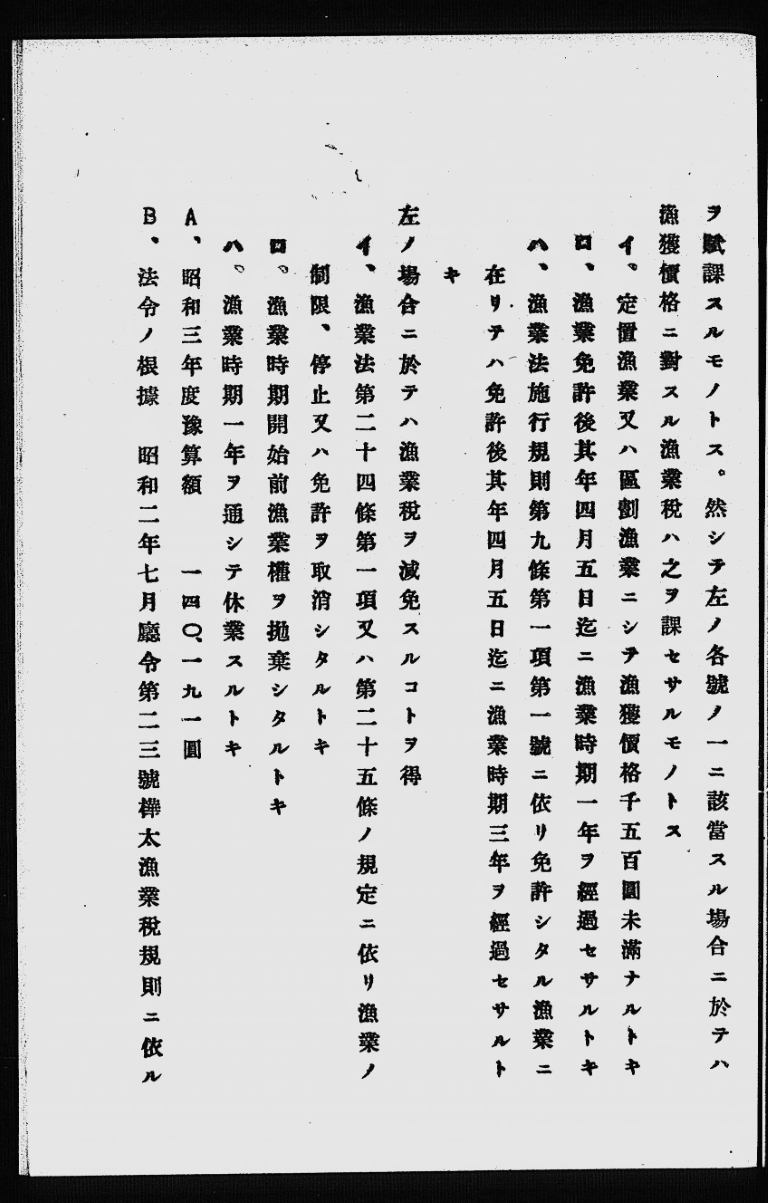 ヲ賦課スルモノトス。然シテ左ノ各號ノ一ニ該當スル場合ニ於テハ
漁獲價格ニ對スル漁業税ハ之ヲ課セサルモノトス
イ、定置漁業又ハ區劃漁業ニシテ漁獲價格千五百圓未滿ナルトキ
ロ、漁業免許後其年四月五日迄ニ漁業時期一年ヲ經過セサルトキ
ハ、漁業法施行規則第九條第一項第一號ニ依リ免許シタル漁業ニ
在リテハ免許後其年四月五日迄ニ漁業時期三年ヲ經過セサルト
キ
左ノ場合ニ於テハ漁業税ヲ減免スルコトヲ得
イ、漁業法第二十四條第一項又ハ第二十五條ノ規定ニ依リ漁業ノ
制限、停止又ハ免許ヲ取消シタルトキ
ロ、漁業時期開始前漁業權ヲ抛棄シタルトキ
ハ、漁業時期一年ヲ通シテ休業スルトキ
A、昭和三年度豫算額　一四〇、一九一圓
B、法令ノ根據　昭和二年七月廳令第二三號樺太漁業税規則ニ依ル